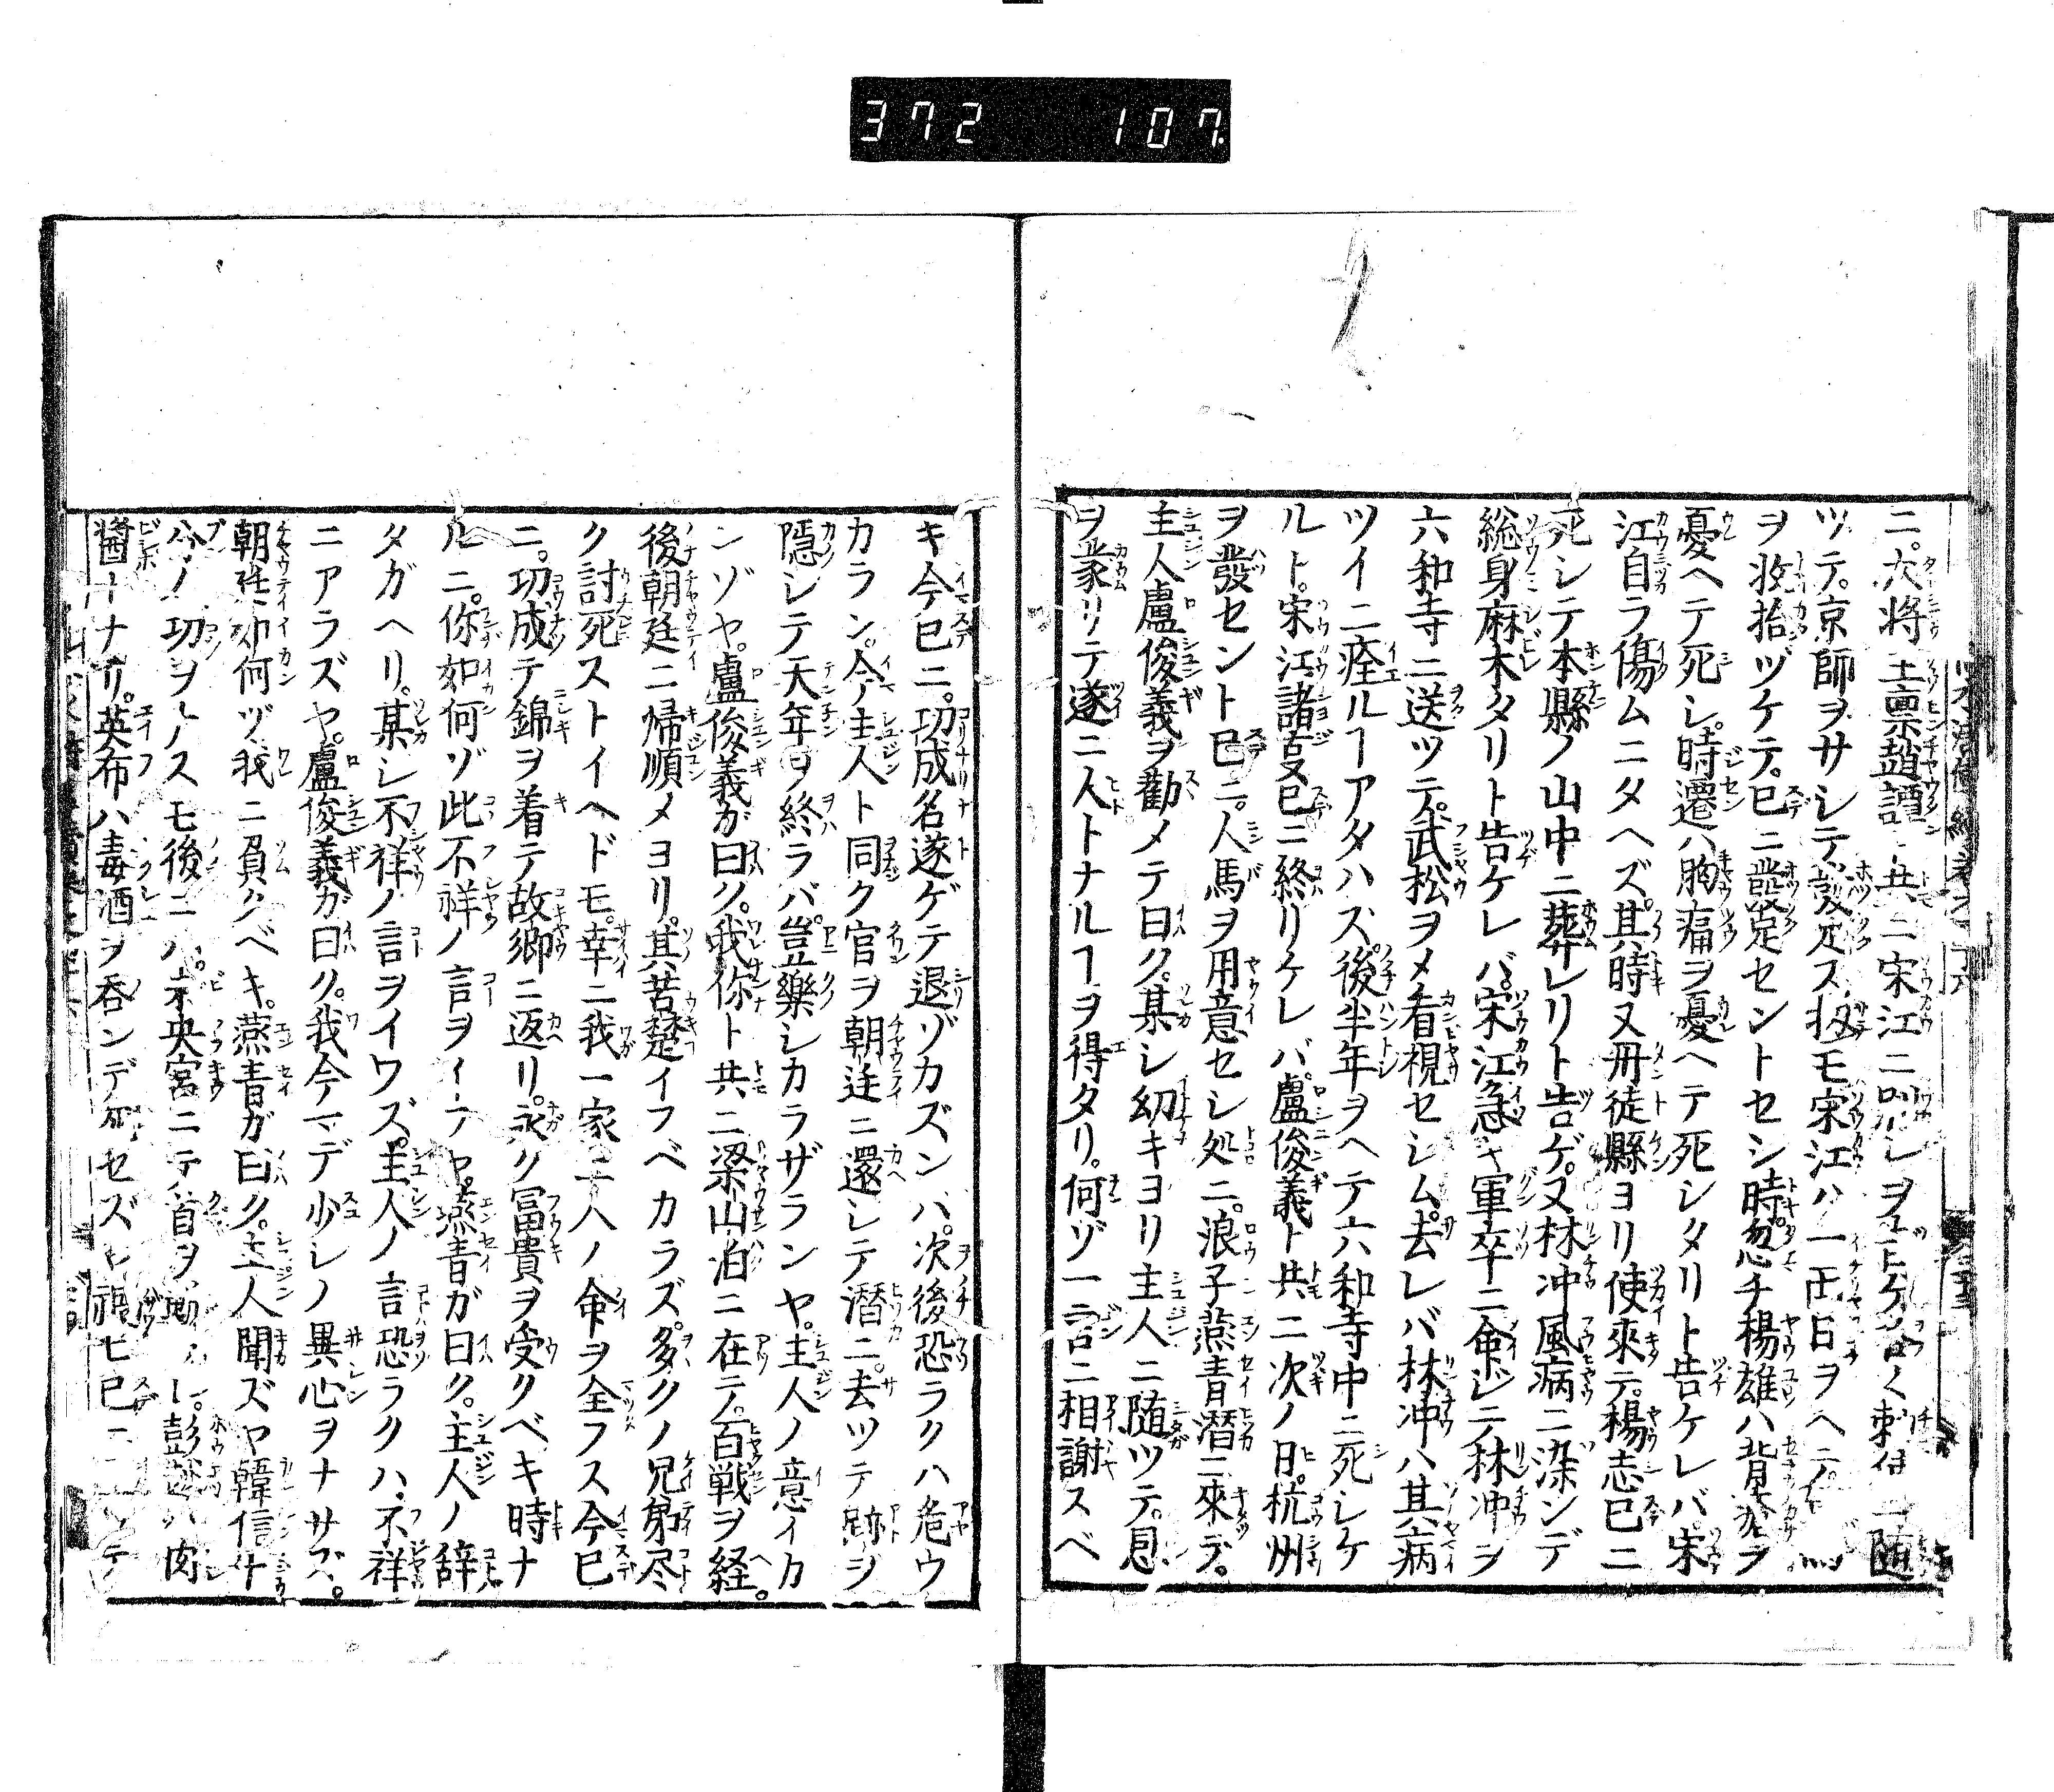 372 107
ニ。次將王稟趙譚ト共ニ宋江ニ
ツテ。京師ヲサシテ發足ス扨モ宋江ハ一両日ヲヘテ。
ヲ收拾ヅケテ。已ニ發足セントセシ時。忽チ楊雄ハ背瘡ヲ
憂ヘテ死シ。時遷ハ胸痛ヲ憂ヘテ死シタリト告ケレバ宋
江自ラ傷ムニタヘズ。其時又丹徒縣ヨリ使來テ。楊志已ニ
死シテ本縣ノ山中ニ葬レリト告ゲ。又林冲風病ニ染ンデ
総身麻木タリト告ケレバ。宋江急キ軍卒ニ命ジテ林冲ヲ
六和寺ニ送ツテ。武松ヲメ看視セシム。去レバ林冲ハ其病
ツイニ痊ルヿアタハス。後半年ヲヘテ六和寺中ニ死シケ
ルト。宋江諸叓已ニ終リケレバ。盧俊義ト共ニ次ノ日。杭州
ヲ發セント已ニ。人馬ヲ用意セシ処ニ。浪子燕青潜ニ來テ。
主人盧俊義ヲ勸メテ曰ク。某シ幼キヨリ主人ニ随ツテ。恩
ヲ蒙リテ遂ニ人トナルヿヲ得タリ。何ゾ一言ニ相謝スベ
キ今已ニ。功成名遂ゲテ退ゾカズンハ。次後恐ラクハ危ウ
カラン。今主人ト同ク官ヲ朝廷ニ還シテ潜ニ。去ツテ跡ヲ
隠シテ天年ヲ終ラバ。豈樂シカラザランヤ。主人ノ意イカ
ンゾヤ。盧俊義ガ曰ク。我你ト共ニ梁山泊ニ在テ。百戦ヲ経。
後朝廷ニ帰順メヨリ。其苦楚イフベカラズ。多クノ兄弟尽
ク討死ストイヘドモ。幸ニ我一家二人ノ命ヲ全フス今已
ニ。功成テ錦ヲ着テ故郷ニ返リ。永ク冨貴ヲ受クベキ時ナ
ルニ。你如何ゾ此不祥ノ言ヲイフヤ。燕青ガ曰ク。主人ノ辞
タガヘリ。某シ不祥ノ言ヲイワズ。主人ノ言恐ラクハ。不祥
ニアラズヤ。盧俊義ガ曰ク。我今マデ少シノ異心ヲナサズ。
朝廷如何ヅ我ニ負クベキ。燕青ガ曰ク。主人聞ズヤ韓信十
分ノ功ヲノスモ後ニハ。未央宮ニテ首ヲ
醤トナリ。英布ハ毒酒ヲ呑ンデ死セズヤ禍ヒ已ニ